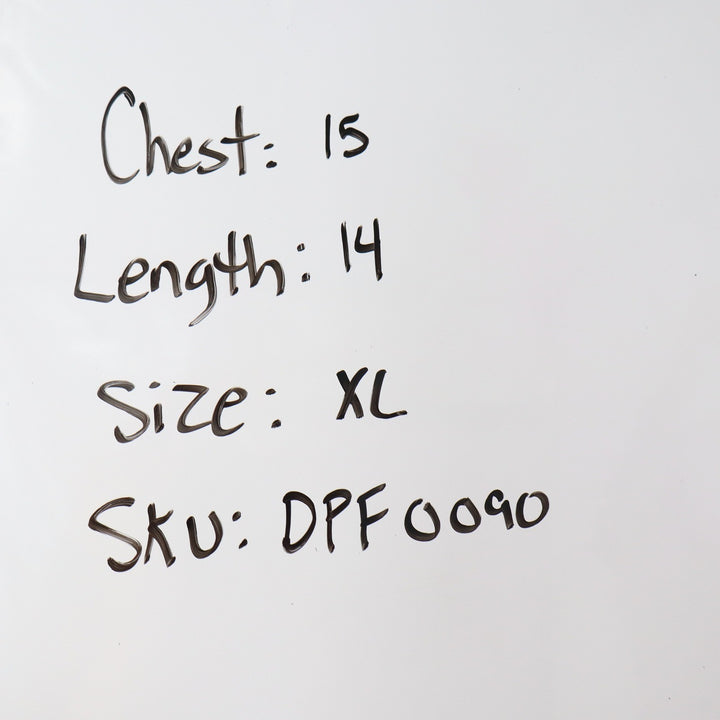 Chest: 15
Length: 14
Size: XL
SKU: DPF0090